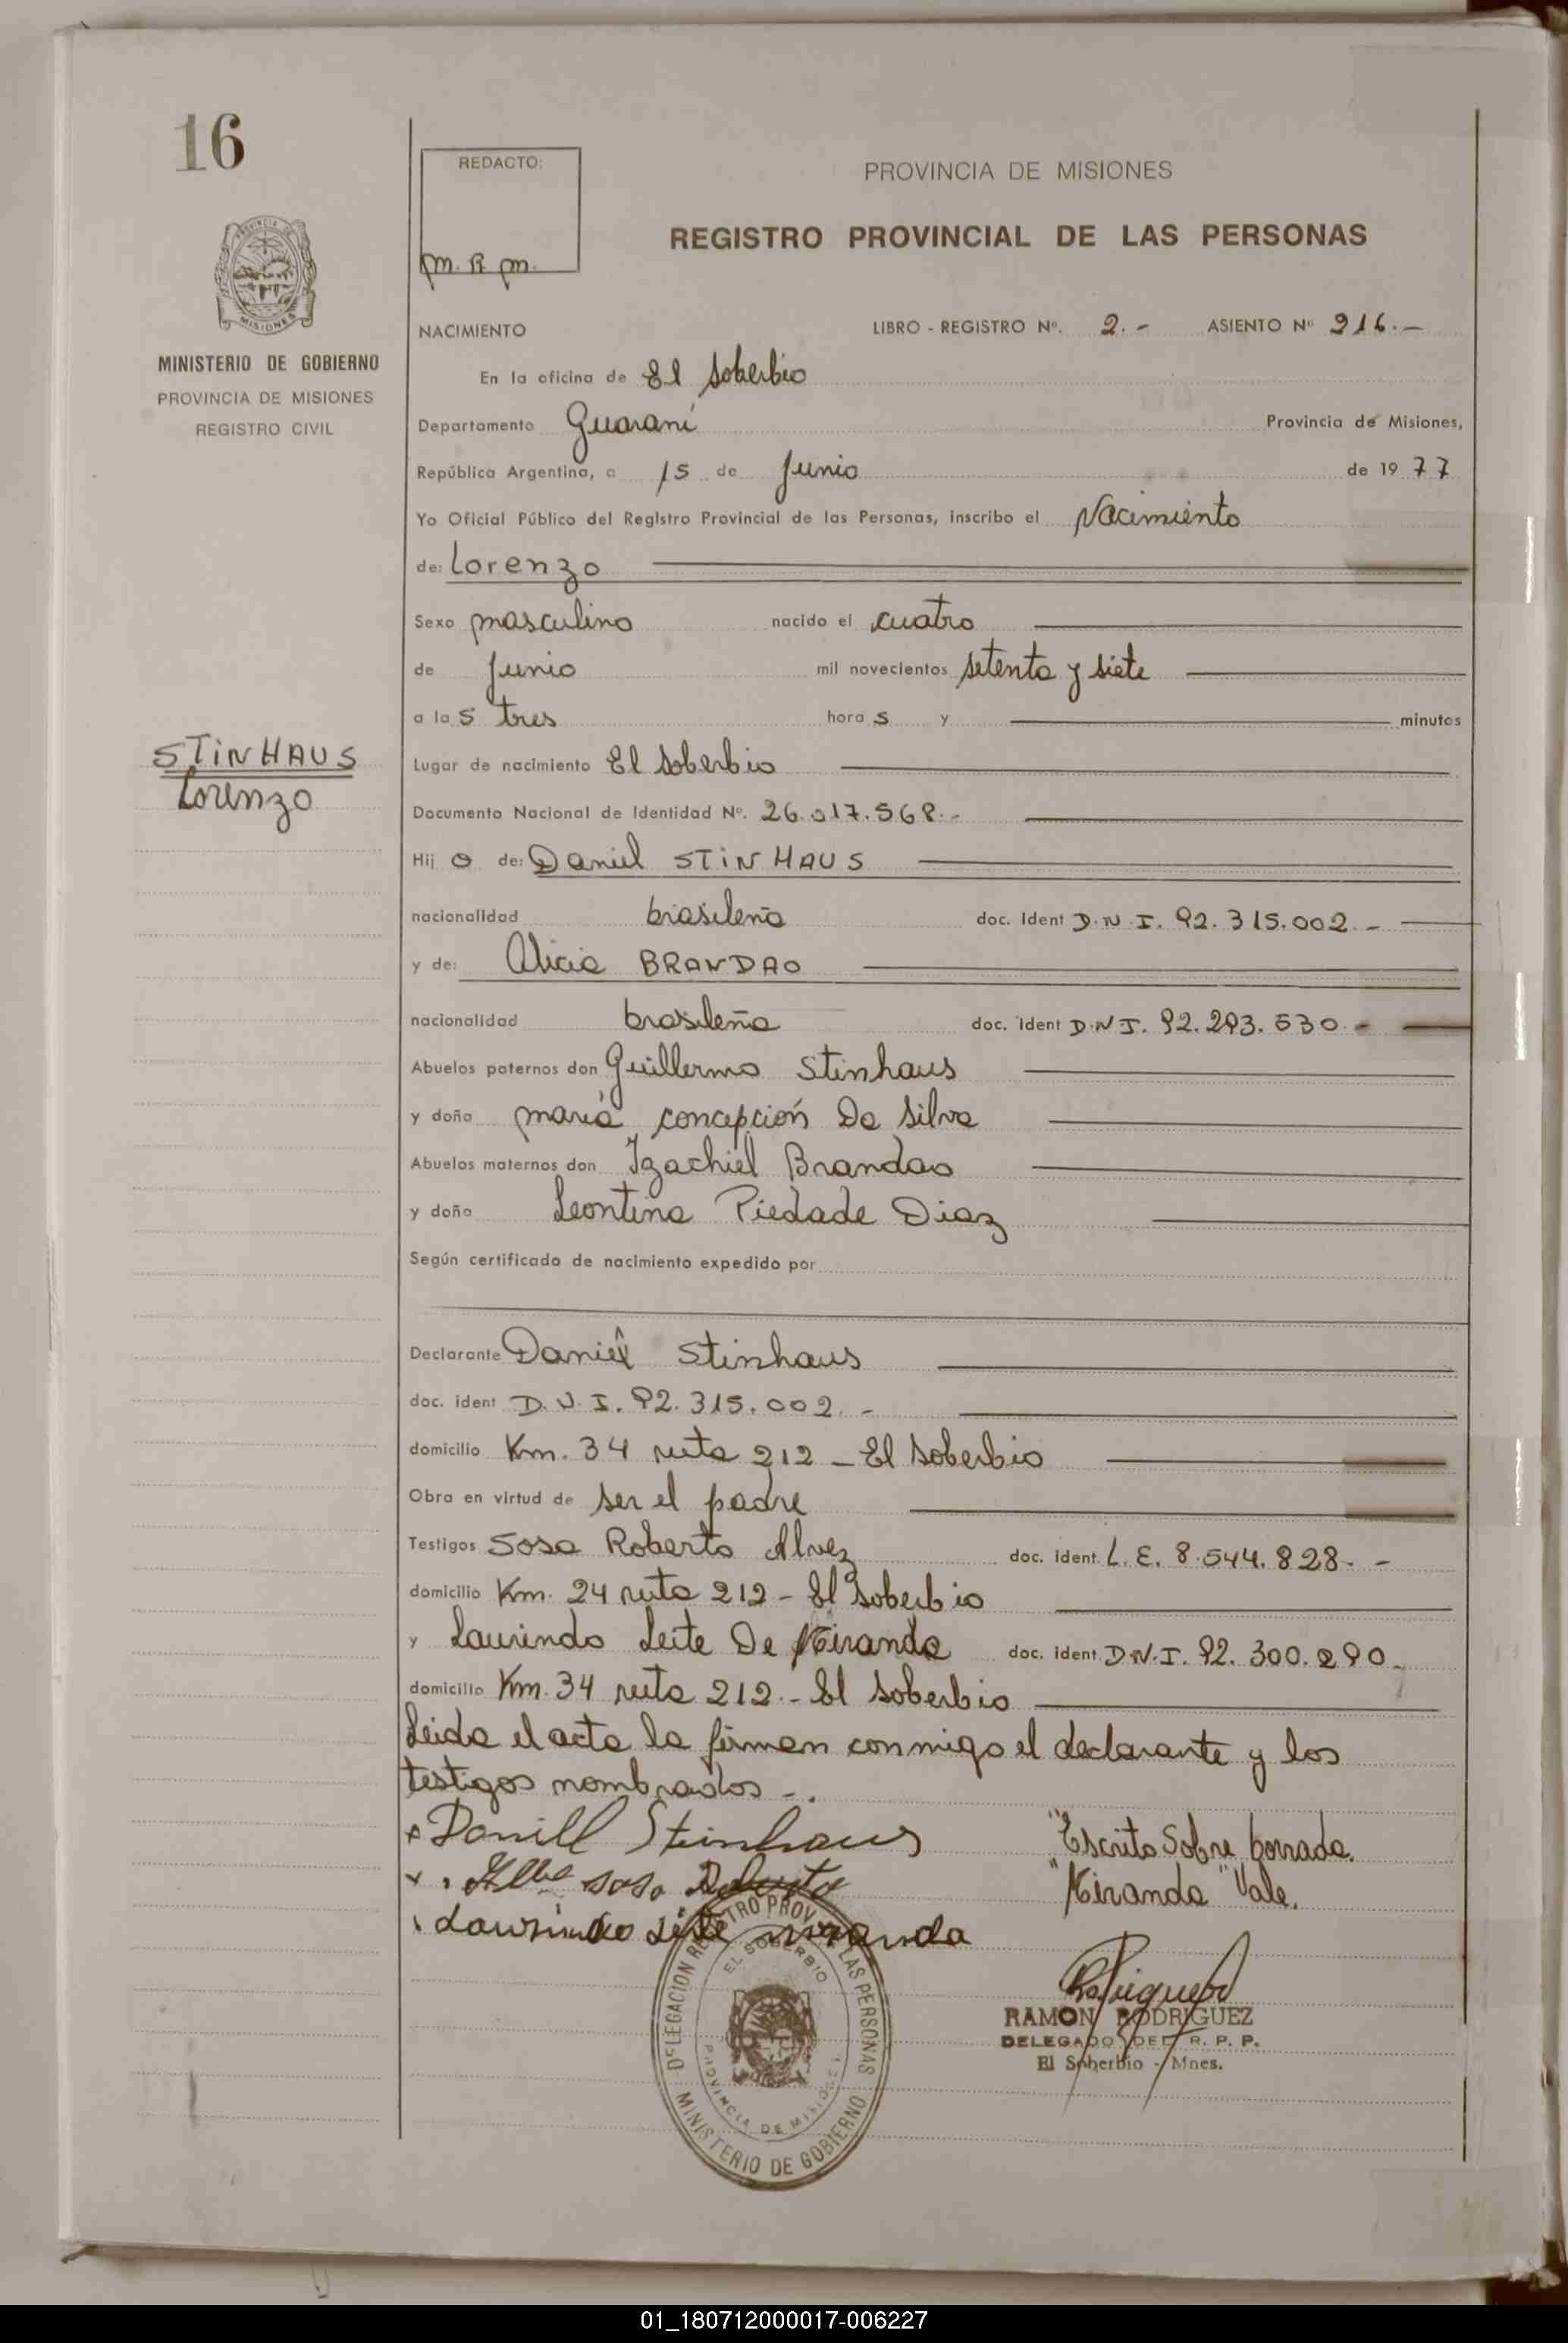 16
REDACTO:
m. R. m.
PROVINCIA DE MISIONES
REGISTRO PROVINCIAL DE LAS PERSONAS
MISIONES
MINISTERIO DE GOBIERNO
PROVINCIA DE MISIONES
REGISTRO CIVIL
NACIMIENTO LIBRO - REGISTRO Nº. 2.- ASIENTO Nº 216.-
En la oficina de El Soberbio
Departamento Guaraní Provincia de Misiones,
República Argentina, a 15 de Junio de 1977
Yo Oficial Público del Registro Provincial de las Personas, inscribo el Nacimiento
de: Lorenzo
Sexo masculino nacido el cuatro
de Junio mil novecientos setenta y siete
a las tres horas y minutos
STINHAUS
Lorenzo
Lugar de nacimiento El Soberbio
Documento Nacional de Identidad Nº. 26.017.568.-
Hijo de: Daniel STINHAUS
nacionalidad brasileña doc. Ident D.N.I. 92.315.002.-
y de: Alicia BRANDAO
nacionalidad brasileña doc. ident D.N.I. 92.293.530.-
Abuelos paternos don Guillermo Stinhaus
y doña María Concepción Da Silva
Abuelos maternos don Izachiel Brandao
y doña Leontina Piedade Diaz
Según certificado de nacimiento expedido por
Declarante Daniel Stinhaus
doc. ident D.N.I. 92.315.002.-
domicilio Km. 34 ruta 212 - El Soberbio
Obra en virtud de ser el padre
Testigos Sosa Roberto Alvez doc. ident. L.E. 8.544.828.-
domicilio Km. 24 ruta 212 - El Soberbio
y Laurindo Leite De Miranda doc. ident. D.N.I. 92.300.290.-
domicilio Km. 34 ruta 212.- El Soberbio
Leida el acta la firman conmigo el declarante y los
testigos nombrados -.
Daniell Steinhaus
"Escrito Sobre borrado.
sosa Roberto
"Miranda" Vale.
Laurindo Leite miranda
DELEGACION REGISTRO PROV. DE LAS PERSONAS
EL SOBERBIO
PROVINCIA DE MISIONES
MINISTERIO DE GOBIERNO
RAMON RODRIGUEZ
DELEGADO DEL R. P. P.
El Soberbio - Mnes.
01_180712000017-006227